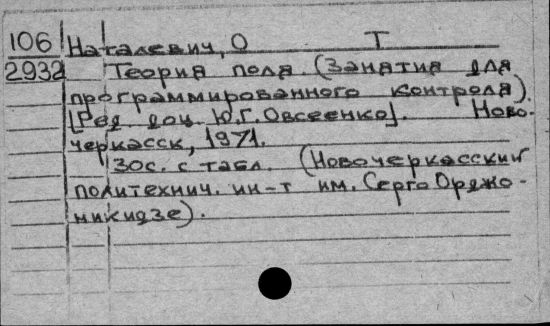 106 Наталевич, О Т
2932 Теория поля. (Занятия для
программированного контроля).
[Ред. доц. Ю.Г. Овсеенко]. Ново-
черкасск, 1971.
30с. с табл. (Новочеркасский
политехнич. ин-т им. Серго Орджо-
никидзе).